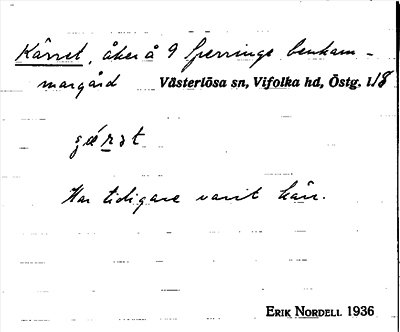 Kärret, åker å 9 Sperringe benkam-
margård Västerlösa sn, Vifolka hd, Östg. l. 18
Har tidigare varit kärr.
ERIK NORDELL 1936